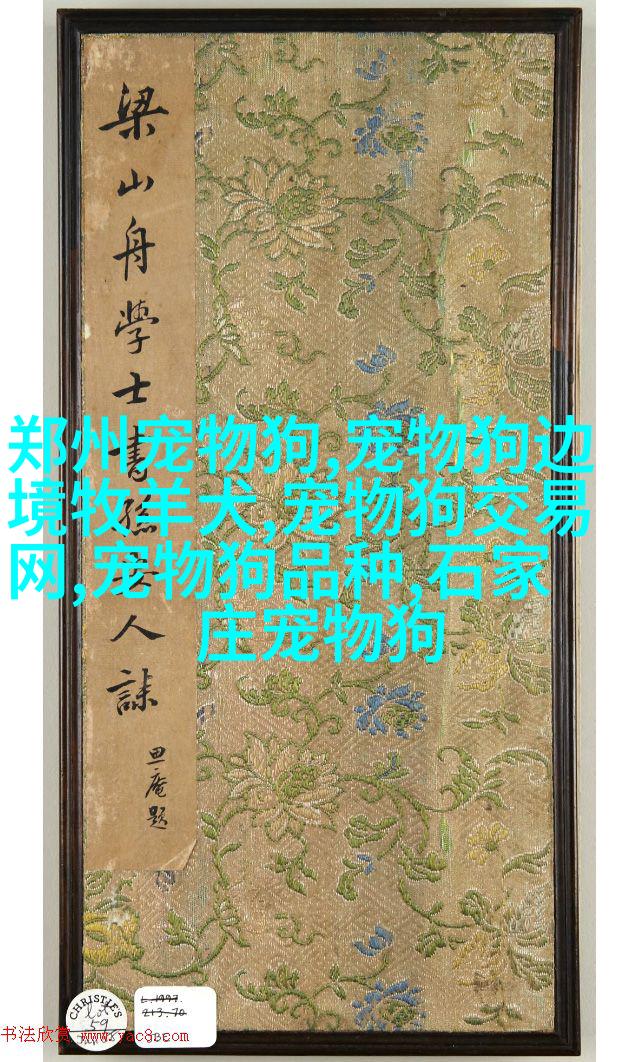 梁山舟學士書孫人誄
庵題
郑州宠物狗,宠物狗边
境牧羊犬,宠物狗交易
网,宠物狗品种,石家
庄宠物狗
CHRISTIE'S
Lot
59
L.1997.
213.70
书法欣赏 www.yac8.com